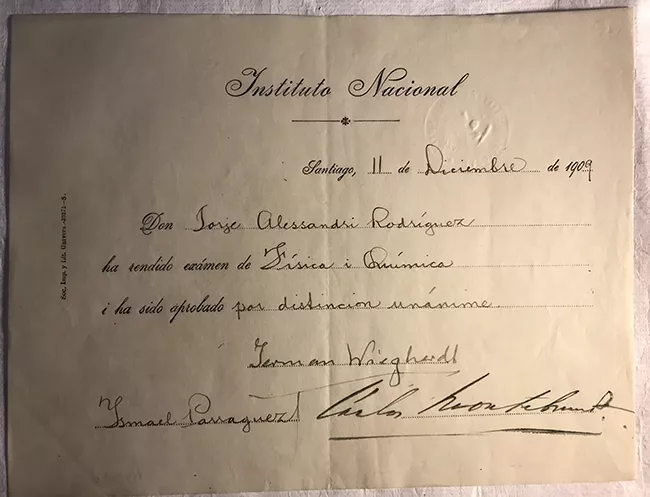 Instituto Nacional
Santiago, 11 de Diciembre de 1909
Don Jorje Alessandri Rodríguez
ha rendido exámen de Física i Química
i ha sido aprobado por distincion unánime.
German Wieghardt
Ismael Parraguez
Carlos
Soc. Imp. y Lit. Universo.